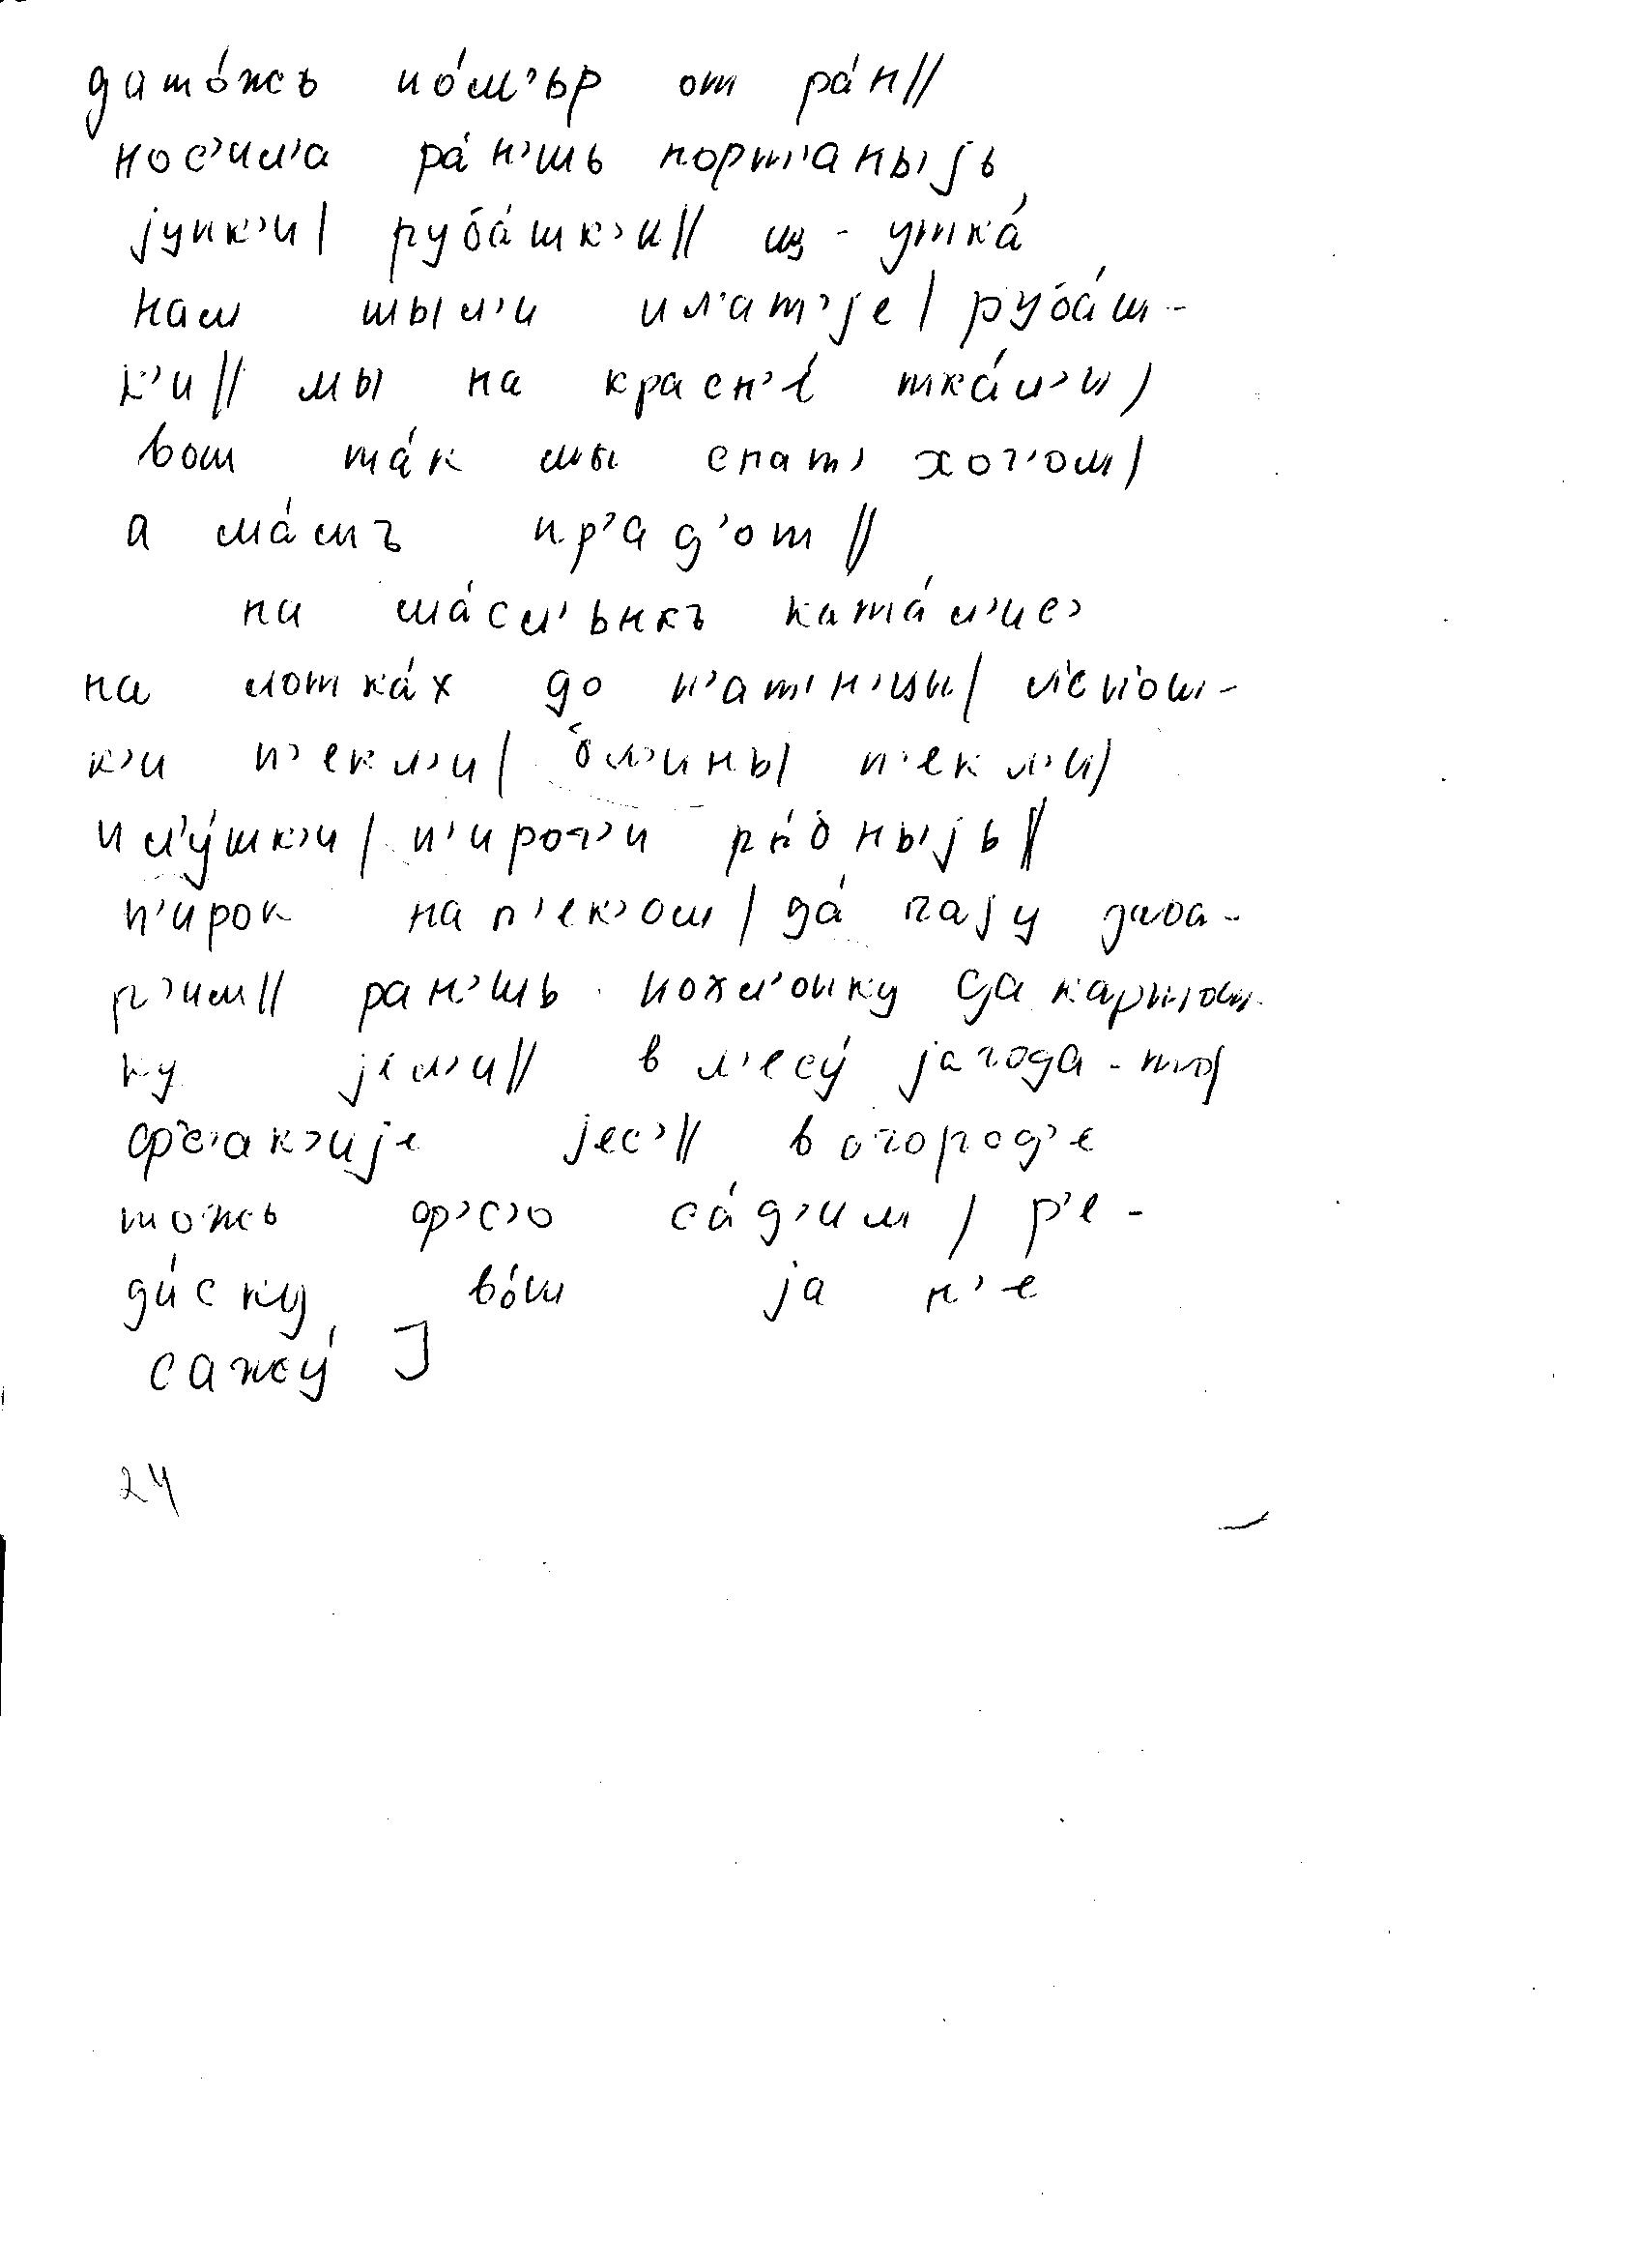 да то́жъ по́м'ър от ра́н//
нос'ил'а ра́н'шь порт'аныjь
jупк'и/ руба́шк'и// из-утка́
нам шыл'и плат'jе/ руба́ш-
к'и// мы на красн'é тка́л'и/
вот та́к мы спат' хот'ом/
а ма́мъ пр'ад'от//
на ма́сл'ьнкъ ката́л'ис'
на лотка́х до п'атн'ицы/ л'еп'ош-
к'и п'екл'и/ бл'ины п'екл'и/
пл'у́шк'и/ п'ирог'и ры́бныjь//
п'ирок нап'ек'ош/ да́ чаjу зава-
р'им// ран'шь похл'опку да картош-
ку jел'и// в л'есу́ jагода-то/
фс'ак'иjе jес'// в огород'е
тожь ф'с'о са́д'им/ р'е-
ди́ску во́т jа н'е
сажу́ ]
24